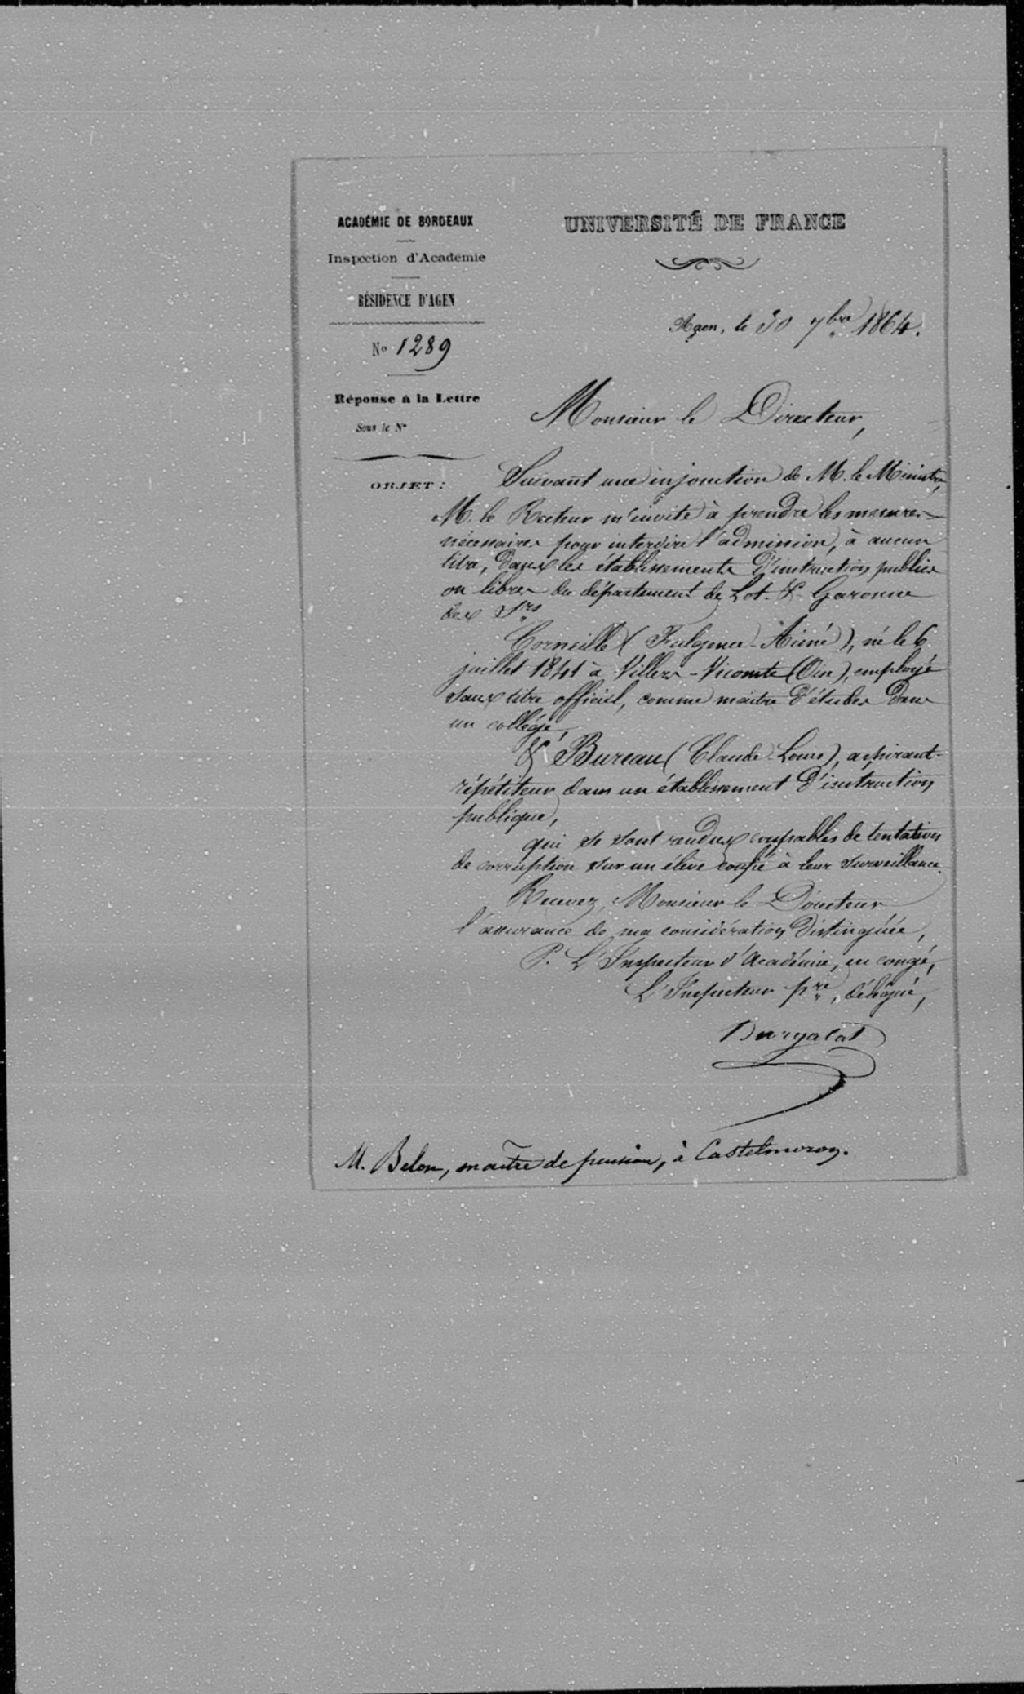 ACADÉMIE DE BORDEAUX
Inspection d'Académie
RÉSIDENCE D'AGEN
N° 1289
Réponse à la Lettre
Sous le N°
OBJET :
UNIVERSITÉ DE FRANCE
Agen, le 30 7bre 1864.
Monsieur le Directeur,
Suivant une injonction de M. le Ministre,
M. le Recteur m'invite à prendre les mesures
nécessaires pour interdire l'admission, à aucun
titre, dans les établissements d'instruction publics
ou libres du département de Lot-&-Garonne
des Srs
Corneille (Fulgence-Aimé), né le 6
juillet 1841 à Villers-Vicomte (Oise), employé
sans titre officiel, comme maître d'études dans
un collège,
& Bureau (Claude-Louis), aspirant-
répétiteur dans un établissement d'instruction
publique,
qui se sont rendus coupables de tentation
de corruption sur un élève confié à leur surveillance.
Recevez, Monsieur le Directeur
l'assurance de ma considération distinguée,
P. L'Inspecteur d'Académie, en congé,
L'Inspecteur pre, délégué,
M. Belon, maître de pension, à Castelmoron.